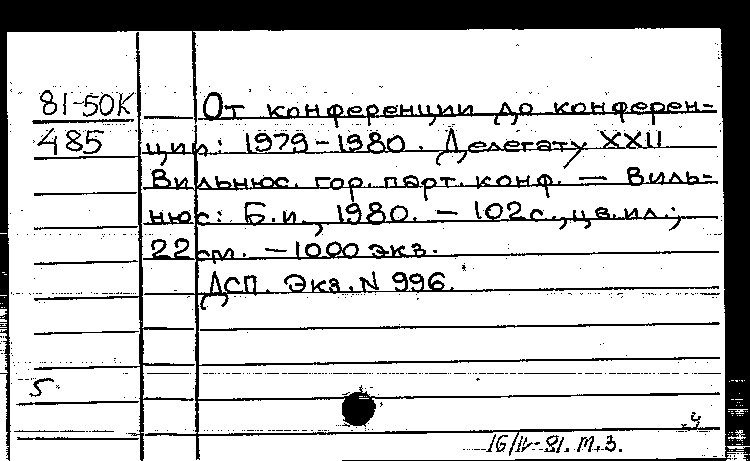 81-50К
485
От конференции до конферен-
ции: 1979-1980. Делегату XXII
Вильнюс. гор. парт. конф. — Виль-
нюс: Б.и., 1980. - 102с., цв.ил.;
22см. - 1000 экз.
ДСП. Экз. N 996.
5
4
16/IV-81. М.З.